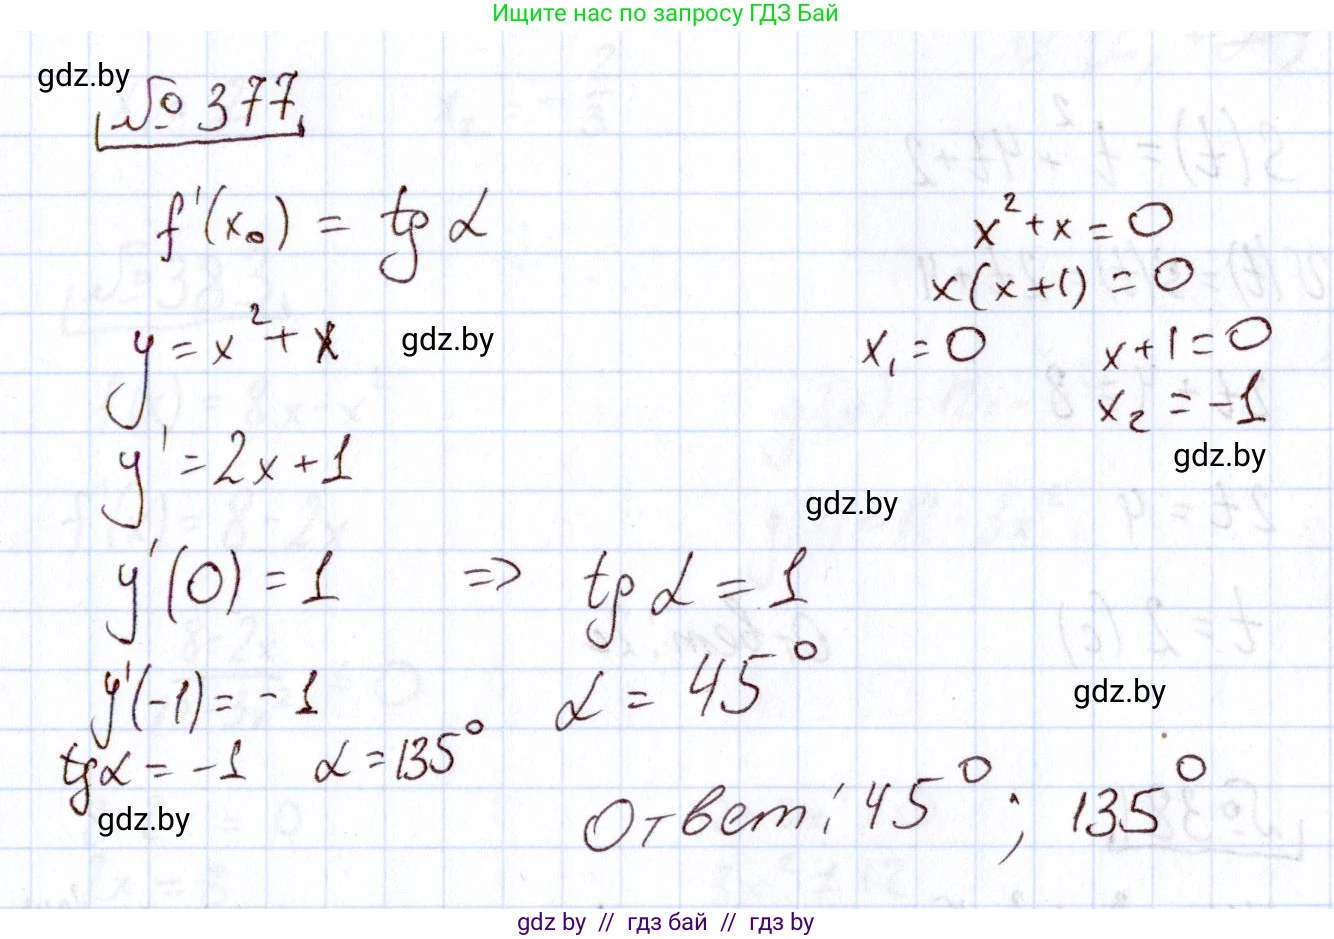 Ищите нас по запросу ГДЗ Бай
gdz.by
№ 377
f'(x₀) = tg α
x² + x = 0
x(x+1) = 0
y = x² + x
gdz.by
x₁ = 0 x+1 = 0
x₂ = -1
y' = 2x+1
gdz.by
gdz.by
y'(0) = 1 => tg α = 1
y'(-1) = -1 α = 45°
gdz.by
tg α = -1 α = 135°
Ответ: 45°; 135°
gdz.by
gdz by // гдз бай // гдз by